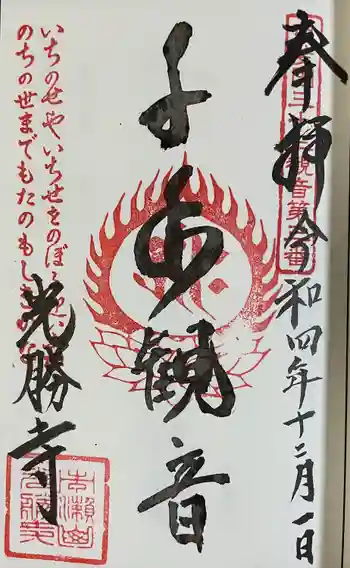 奉拝
令和四年十二月一日
千手観音
いちのせやいちせをのぼ
のちの世までもたのもし
光勝寺